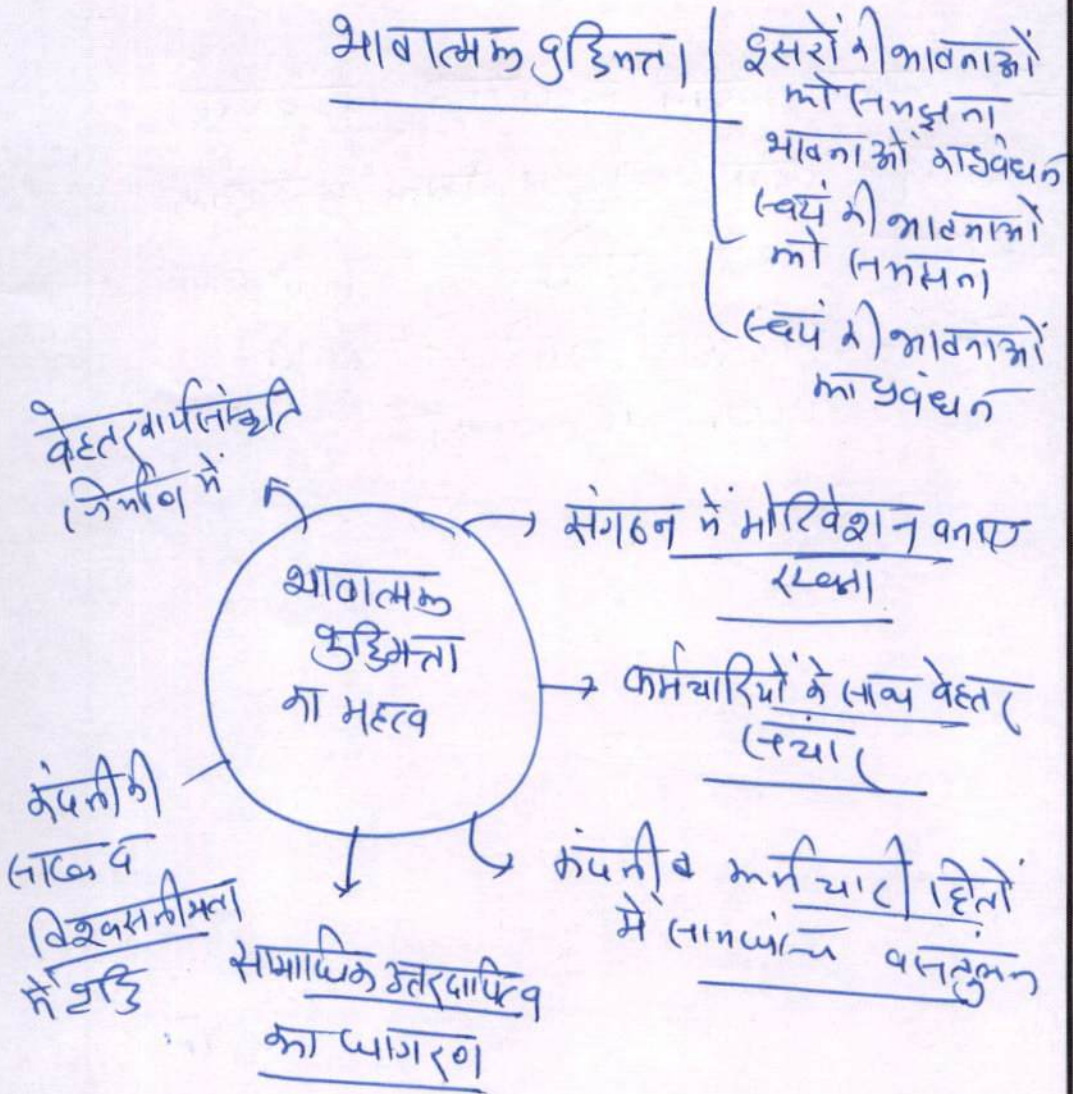 भावात्मक बुद्धिमत्ता
दूसरों की भावनाओं
को समझना
भावनाओं का प्रबंधन
स्वयं की भावनाओं
को समझना
स्वयं की भावनाओं
का प्रबंधन
बेहतर कार्यसंस्कृति
निर्माण में
भावात्मक
बुद्धिमत्ता
का महत्व
संगठन में मोटिवेशन बनाए
रखना
कर्मचारियों के साथ बेहतर
संचार
कंपनी व कर्मचारी हितों
में सामंजस्य व संतुलन
सामाजिक उत्तरदायित्व
का जागरण
कंपनी की
साख व
विश्वसनीयता
में वृद्धि